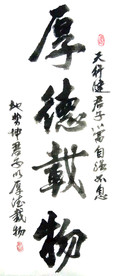 天行健君子以自强不息
厚德載物
地勢坤君子以厚德載物